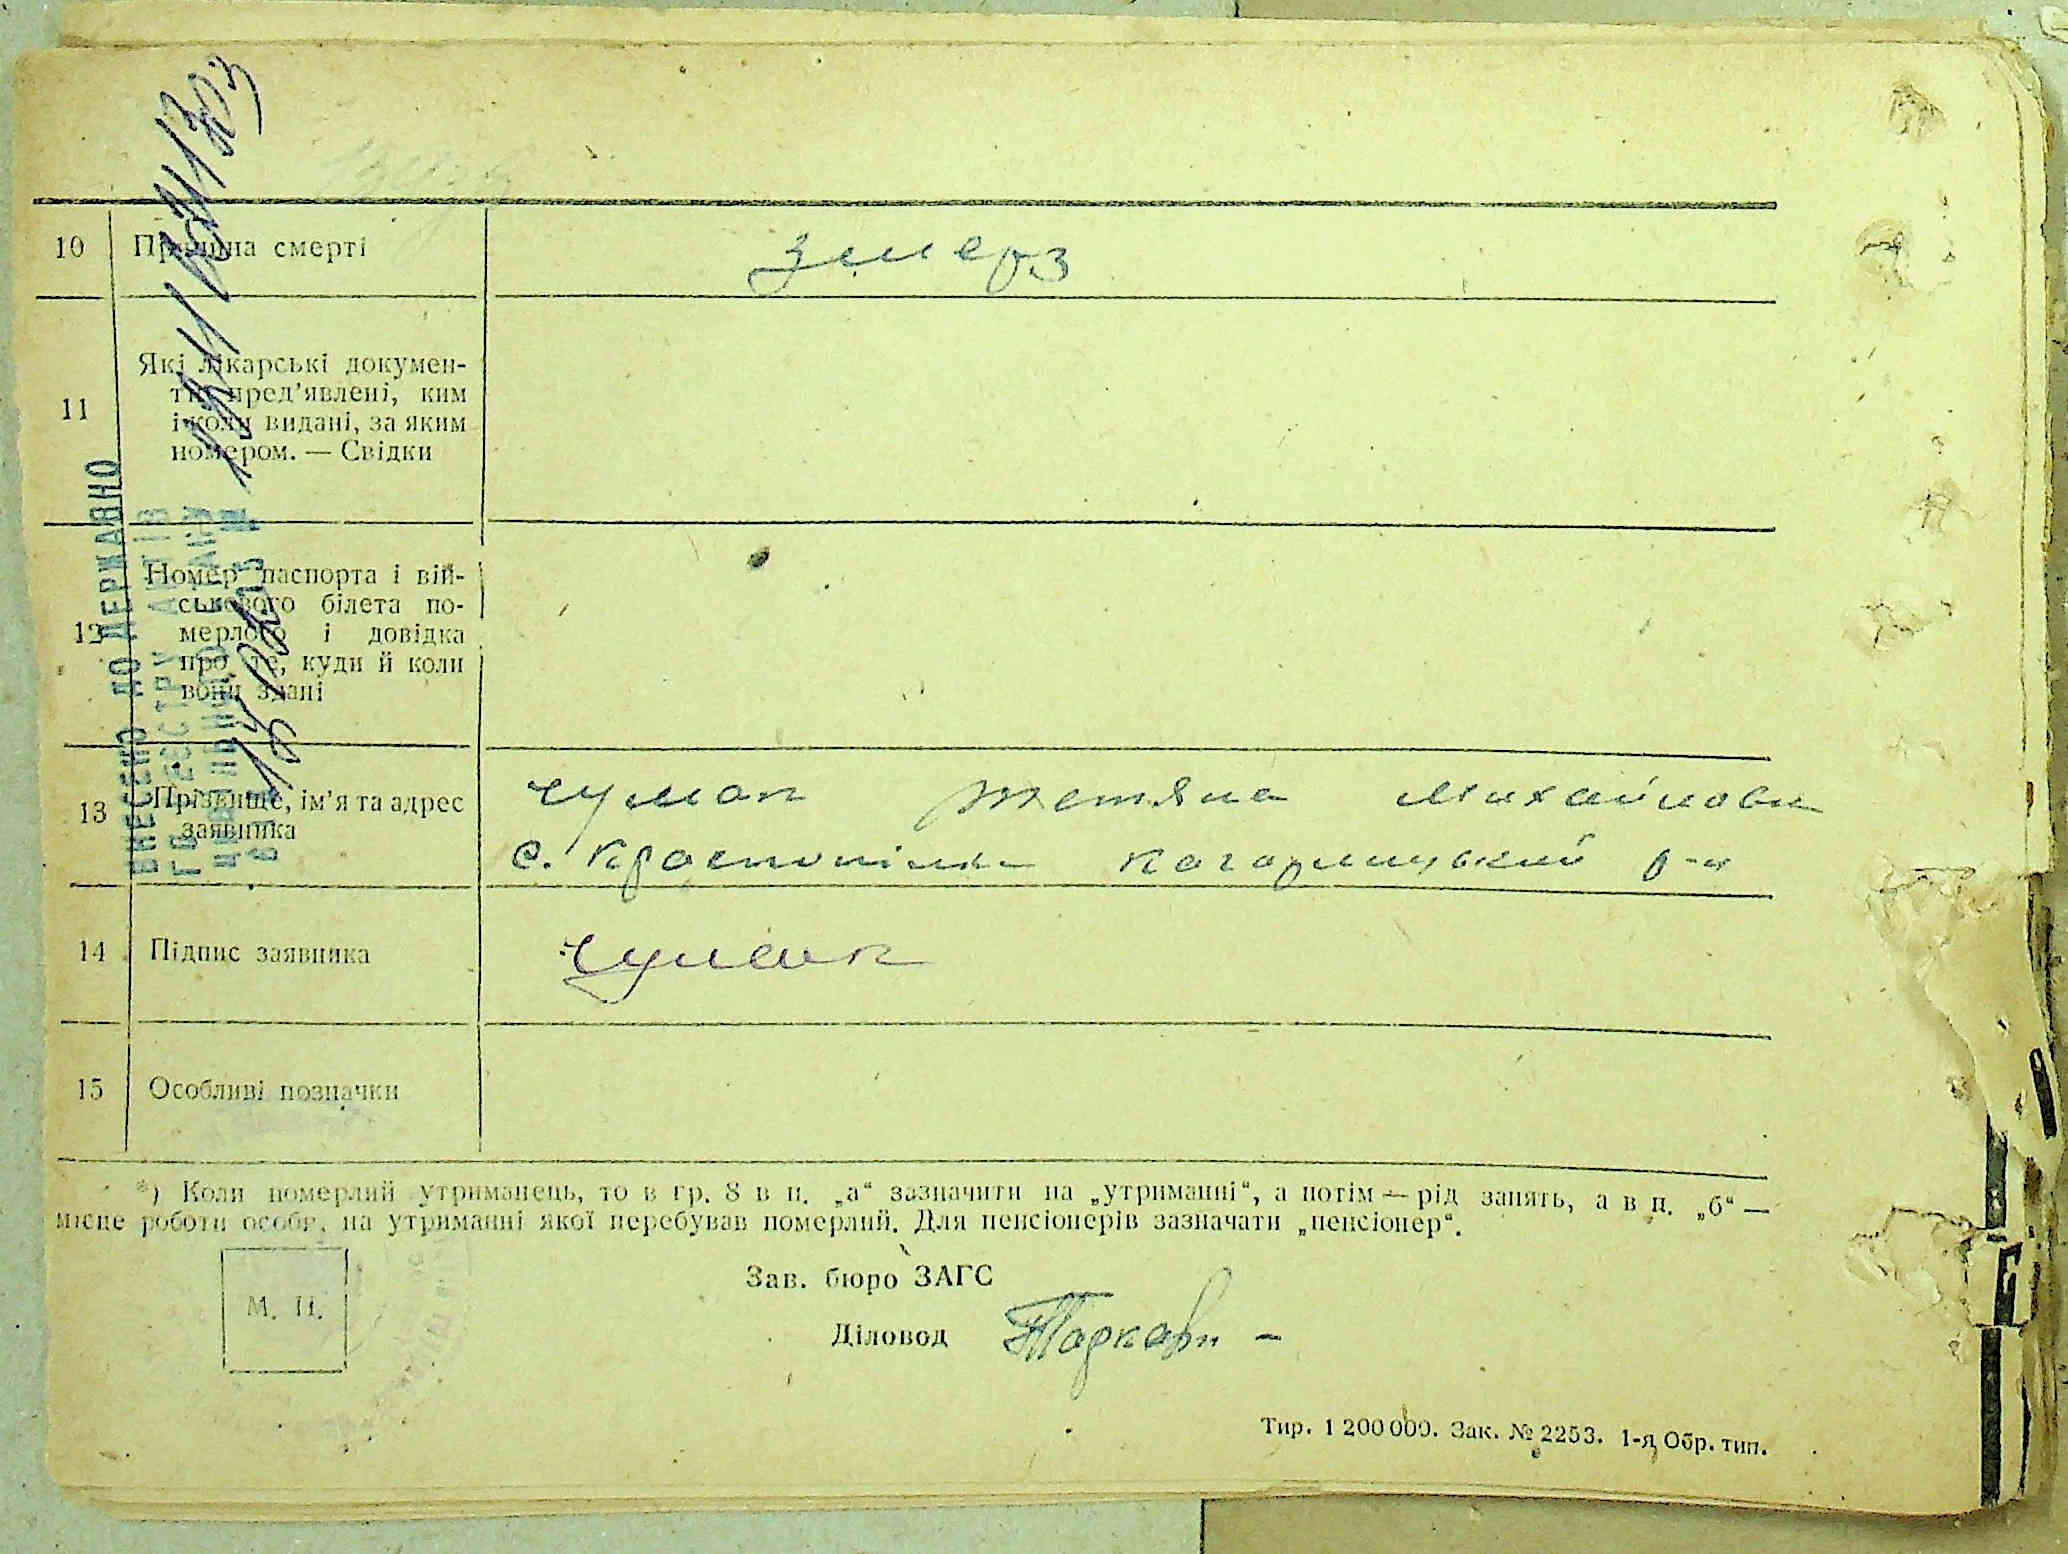 10 Причина смерті змерз
11 Які лікарські докумен-
ти пред’явлені, ким
і коли видані, за яким
номером. — Свідки
12 Номер паспорта і вій-
ськового білета по-
мерлого і довідка
про те, куди й коли
вони здані
13 Прізвище, ім’я та адрес
заявника
Чумак Тетяна Михайловн
с. Кагарлицький р-н
14 Підпис заявника Чумак
15 Особливі позначки
*) Коли померлий утриманець, то в гр. 8 в п. „а“ зазначити на „утриманні“, а потім — рід занять, а в п. „б“ —
місце роботи особи, на утриманні якої перебував померлий. Для пенсіонерів зазначати „пенсіонер“.
М. П.
Зав. бюро ЗАГС
Діловод
Тир. 1 200 000. Зак. № 2253. 1-я Обр. тип.
ВНЕСЕНО ДО ДЕРЖАВНО
ГО РЕЄСТРУ АКТІВ
ЦИВІЛЬНОГО СТАНУ